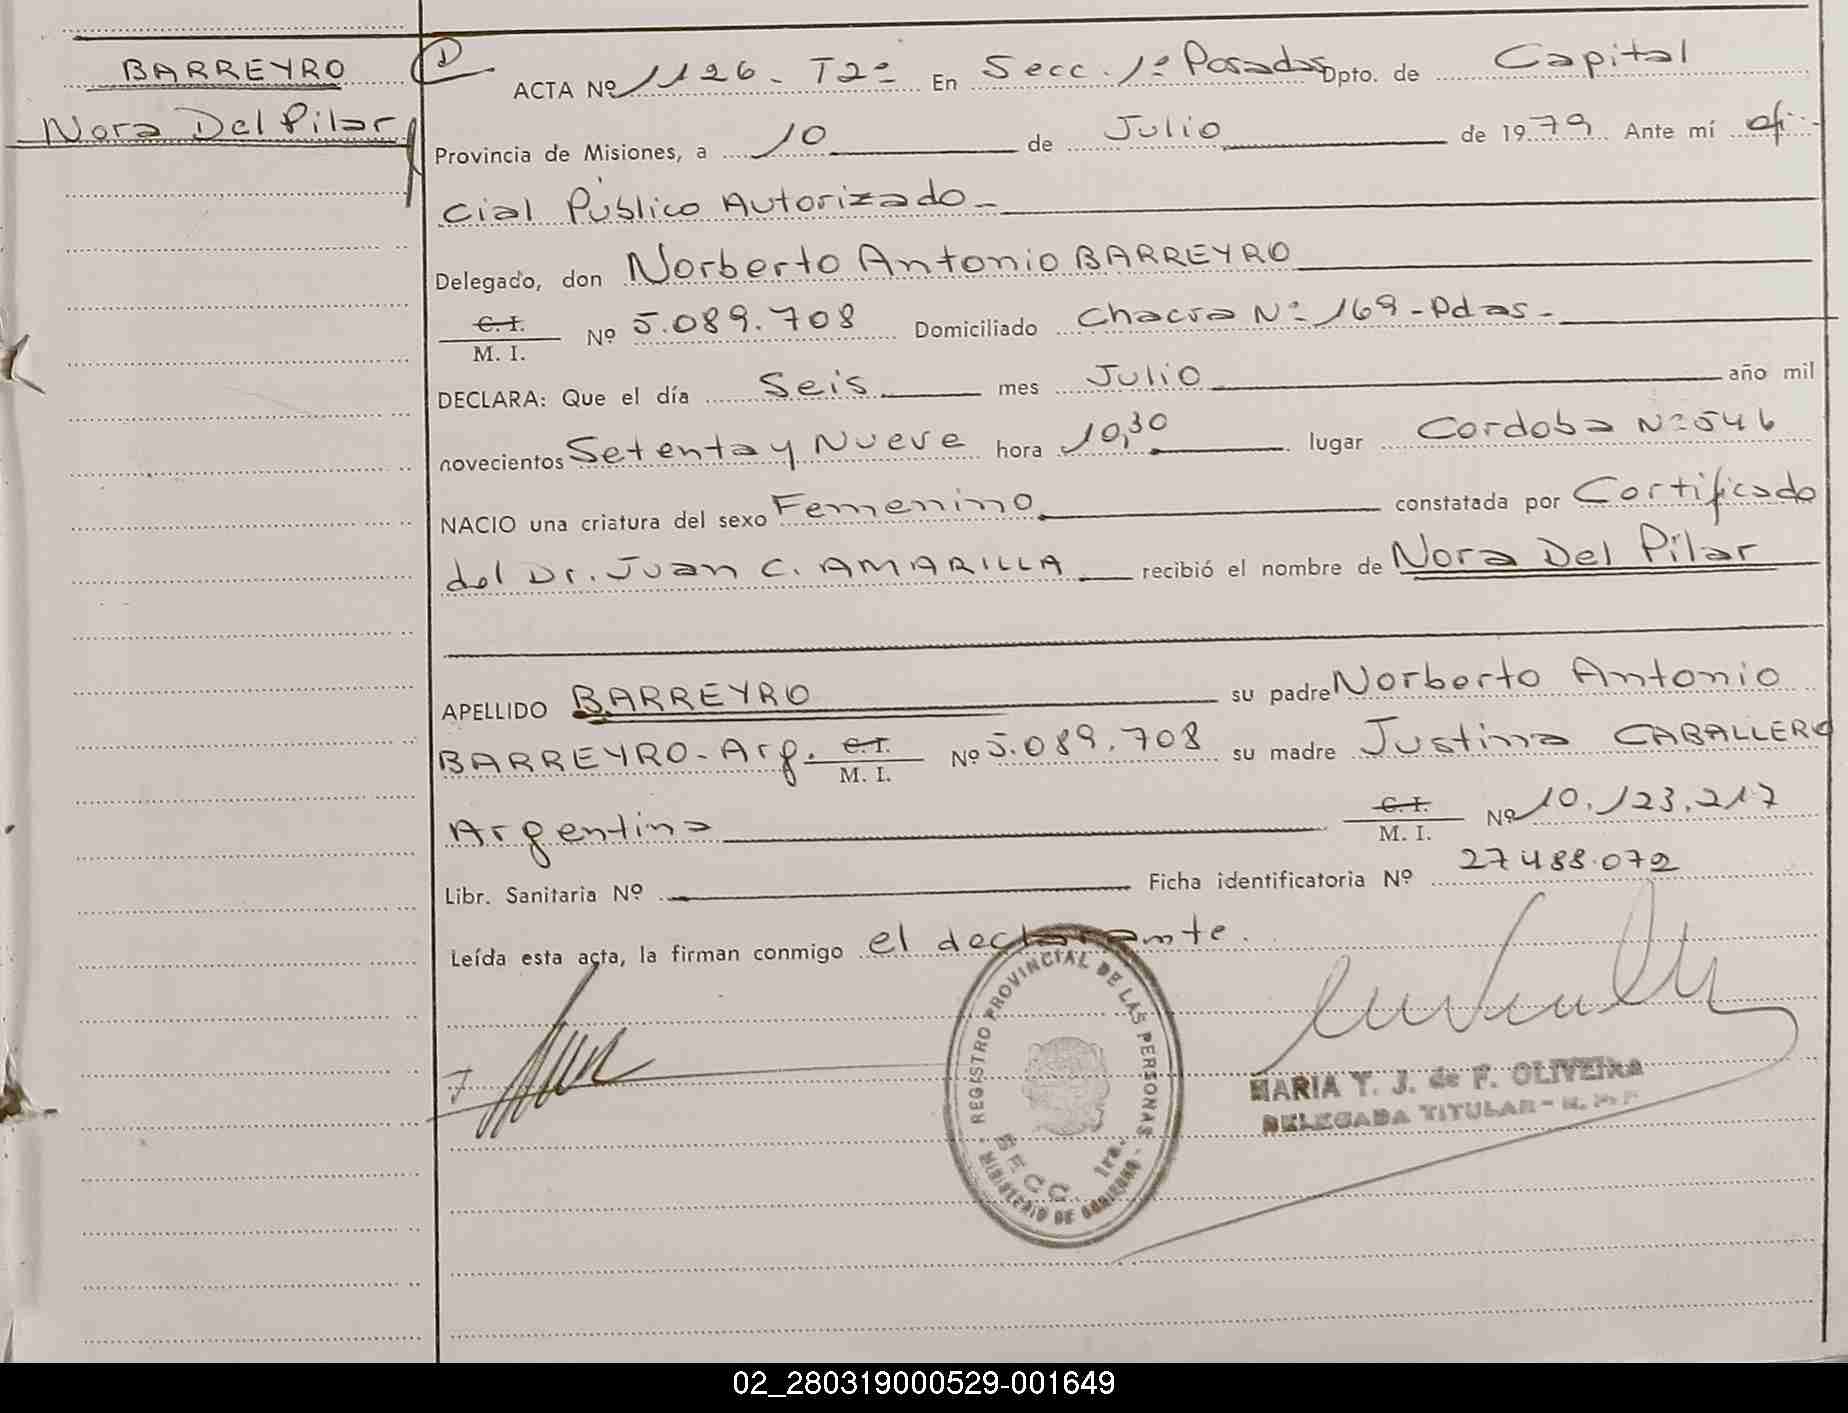 BARREYRO
Nora Del Pilar
ACTA Nº 1126 - T2º En Secc. 1ª Posadas Dpto. de Capital
Provincia de Misiones, a 10 de Julio de 1979 Ante mí Ofi-
cial Público Autorizado -
Delegado, don Norberto Antonio BARREYRO
C. I.
M. I. Nº 5.089.708 Domiciliado Chacra Nº 169 - Pdas -
DECLARA: Que el día Seis mes Julio año mil
novecientos Setenta y Nueve hora 10,30 lugar Cordoba Nº 546
NACIO una criatura del sexo Femenino constatada por Certificado
del Dr. Juan C. AMARILLA recibió el nombre de Nora Del Pilar
APELLIDO BARREYRO su padre Norberto Antonio
BARREYRO - Arg. C. I.
M. I. Nº 5.089.708 su madre Justina CABALLERO
Argentina C. I.
M. I. Nº 10.123.217
Libr. Sanitaria Nº Ficha identificatoria Nº 27488.072
Leída esta acta, la firman conmigo el declarante.
REGISTRO PROVINCIAL DE LAS PERSONAS
SECC. 1ra.
MINISTERIO DE GOBIERNO
MARIA Y. J. de F. OLIVEIRA
DELEGADA TITULAR -
02_280319000529-001649